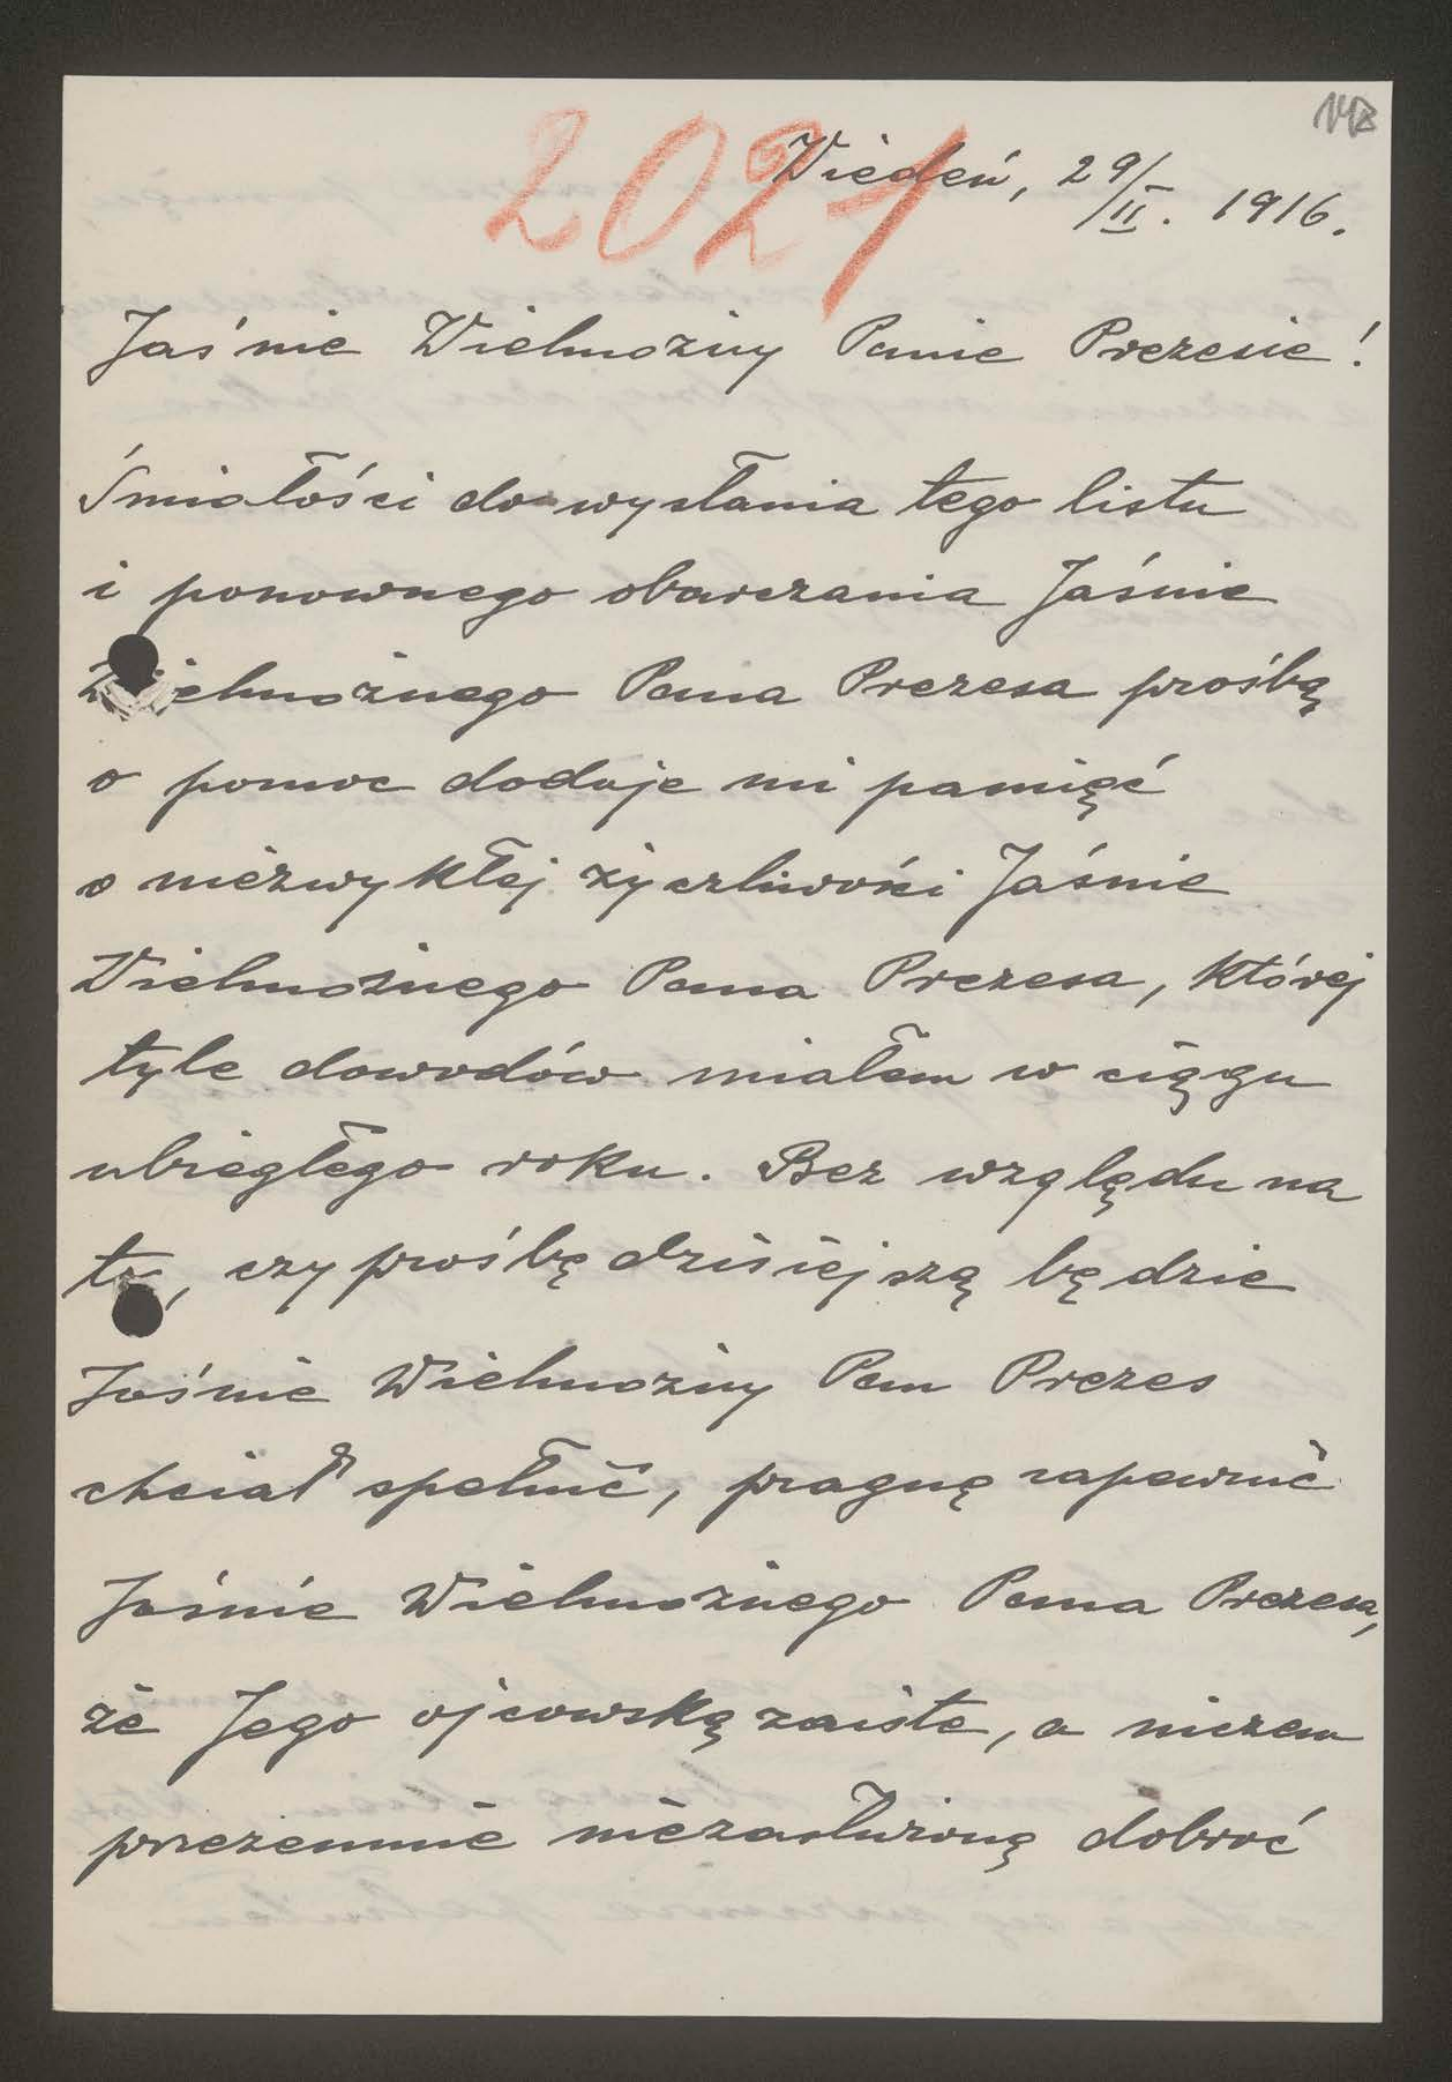 148
2021
Wiedeń, 29/II. 1916.
Jaśnie Wielmożny Panie Prezesie!
Śmiałości do wysłania tego listu
i ponownego obarczania Jaśnie
Wielmożnego Pana Prezesa prośbą
o pomoc dodaje mi pamięć
o niezwykłej życzliwości Jaśnie
Wielmożnego Pana Prezesa, której
tyle dowodów miałem w ciągu
ubiegłego roku. Bez względu na
to, czy prośbę dzisiejszą będzie
Jaśnie Wielmożny Pan Prezes
chciał spełnić, pragnę zapewnić
Jaśnie Wielmożnego Pana Prezesa,
że Jego ojcowską zaiste, a niczem
przezemnie niezasłużoną dobroć